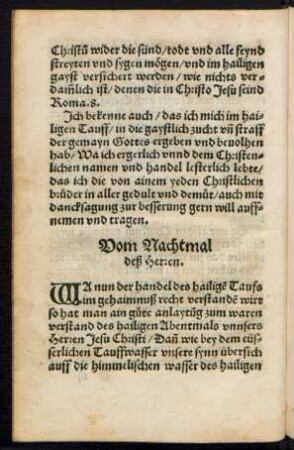 Christū wider die sünd/todt vnd alle feynd
streyten vnd sygen mögen/vnd im hailigen
gayst versichert werden/wie nichts ver-
dam̄lich ist/denen die in Christo Jesu seind
Roma.8.
Jch bekenne auch/das ich mich im hai-
ligen Tauff/in die gaystlich zucht vn̄ straff
der gemayn Gottes ergeben vnd beuolhen
hab/Wa ich ergerlich vnnd dem Christen-
lichen namen vnd handel lesterlich lebte/
das ich die von ainem yeden Christlichen
brůder in aller gedult vnd demůt/auch mit
dancksagung zur besserung gern will auff-
nemen vnd tragen.
Vom Nachtmal
deß Herren.
WA nun der handel des hailigē Taufs
im gehaimnuß recht verstandē wirt
so hat man ain gůte anlaytūg zum waren
verstand des hailigen Abentmals vnnsers
Herren Jesu Christi/Dañ wie bey dem eüs-
serlichen Tauffwasser vnsere synn übersich
auff die himmelischen wasser des hailigen